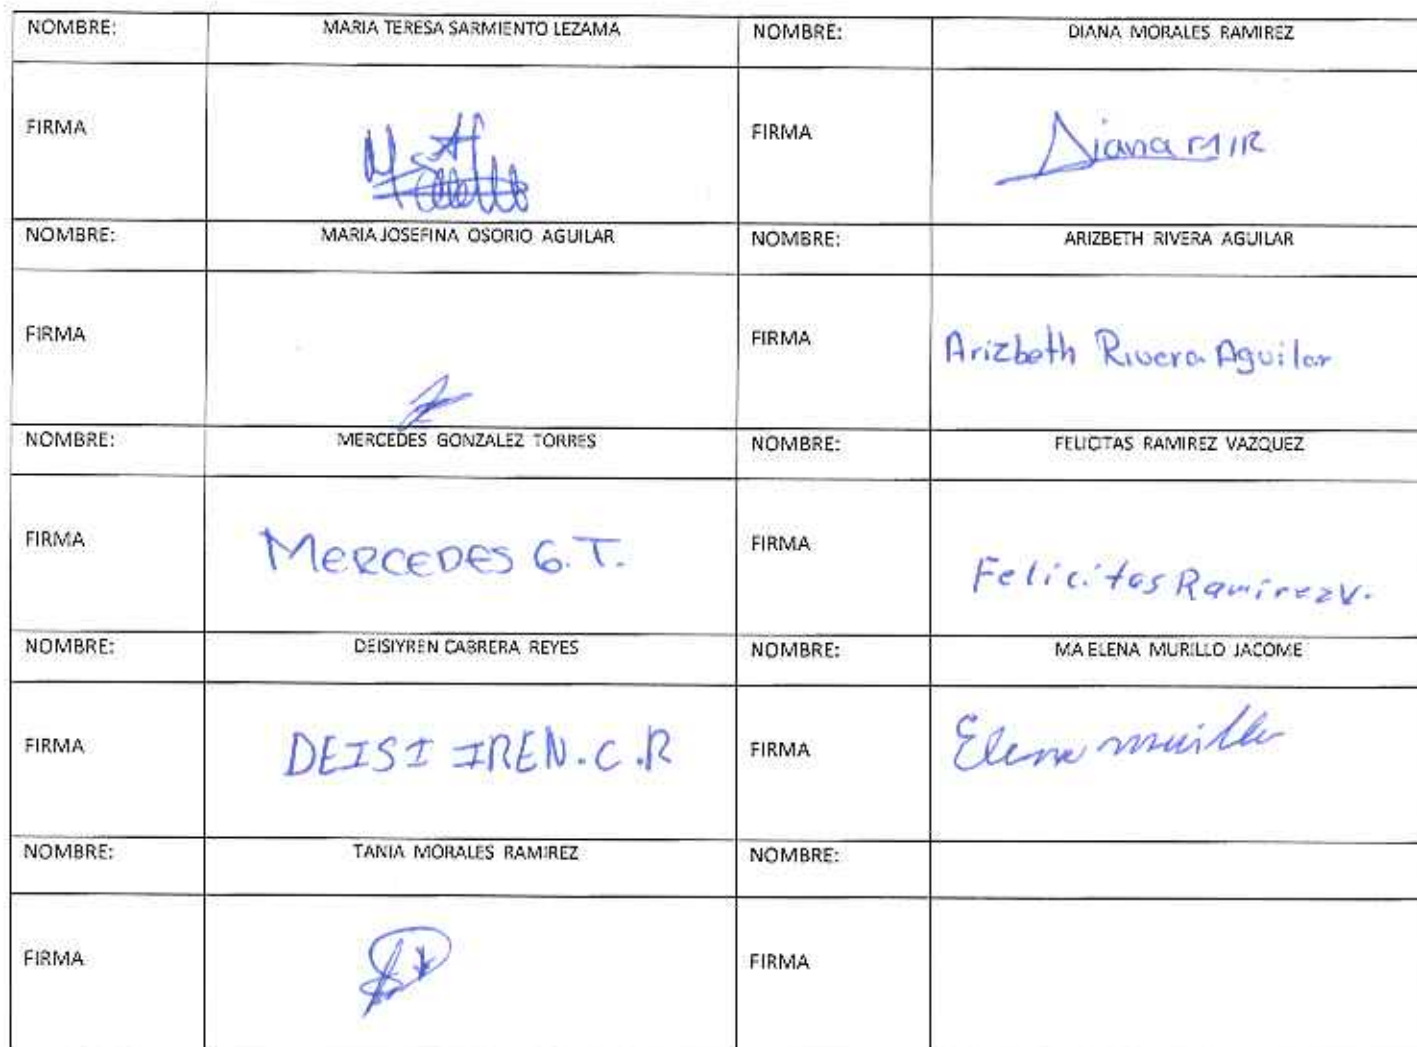 NOMBRE: MARIA TERESA SARMIENTO LEZAMA NOMBRE: DIANA MORALES RAMIREZ
FIRMA FIRMA Diana M R
NOMBRE: MARIA JOSEFINA OSORIO AGUILAR NOMBRE: ARIZBETH RIVERA AGUILAR
FIRMA FIRMA Arizbeth Rivera Aguilar
NOMBRE: MERCEDES GONZALEZ TORRES NOMBRE: FELICITAS RAMIREZ VAZQUEZ
FIRMA MERCEDES G.T. FIRMA Felicitas Ramirez V.
NOMBRE: DEISIYREN CABRERA REYES NOMBRE: MA ELENA MURILLO JACOME
FIRMA DEISI IREN.C.R FIRMA Elena murillo
NOMBRE: TANIA MORALES RAMIREZ NOMBRE:
FIRMA FIRMA